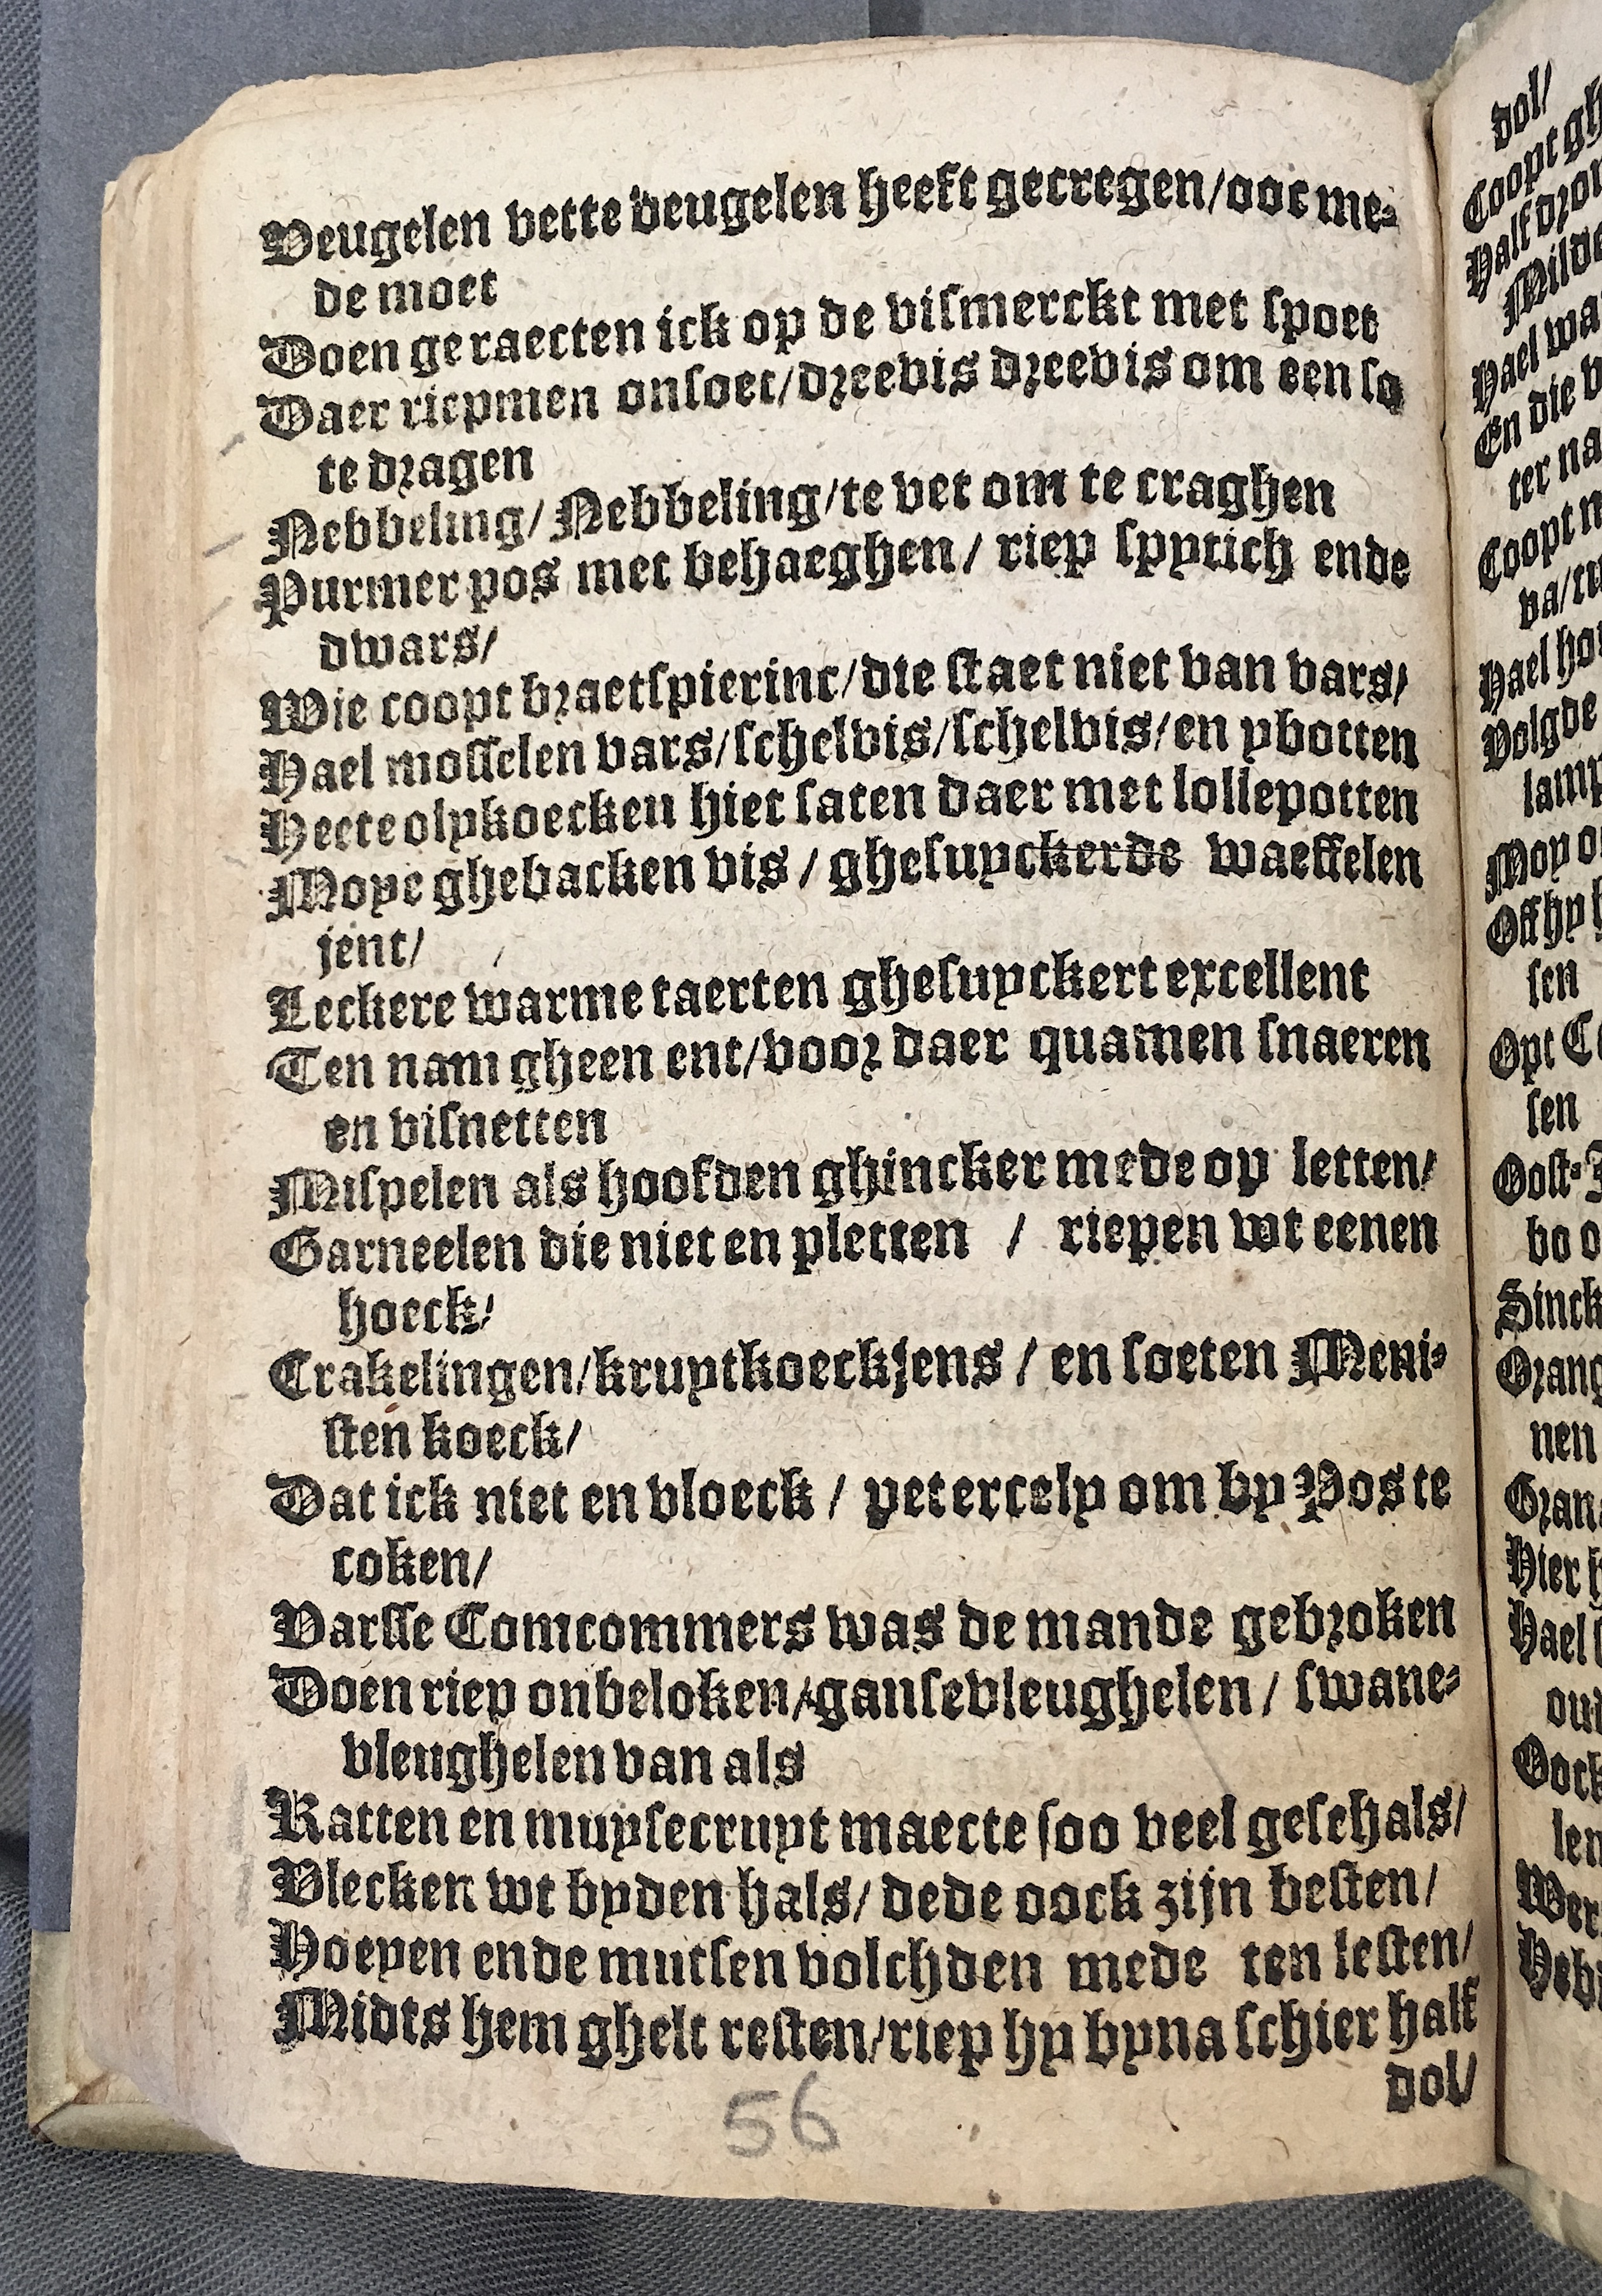 Veugelen vette veugelen heeft gecregen/ooc me-
de moet
Doen geraecten ick op de vismerckt met spoet
Daer riepmen onsoet/dreevis dreevis om een so
te dragen
Nebbeling/ Nebbeling/te vet om te craghen
Purmer pos met behaeghen/ riep spytich ende
dwars/
Wie coopt braetspierinc/die staet niet van vars/
Hael mosselen vars/schelvis/schelvis/en ybotten
Heete olykoecken hiet saten daer met lollepotten
Moye ghebacken vis / ghesuyckerde waeffelen
jent/
Leckere warme taerten ghesuyckert excellent
Ten nam gheen ent/voor daer quamen snaeren
en visnetten
Mispelen als hoofden ghincker mede op letten/
Garneelen die niet en pletten / riepen wt eenen
hoeck/
Crakelingen/kruytkoeckjens / en soeten Meni-
sten koeck/
Dat ick niet en vloeck / petercely om by Pos te
coken/
Varsse Comcommers was de mande gebroken
Doen riep onbeloken/gansevleughelen / swane-
vleughelen van als
Ratten en muysecruyt maecte soo veel geschals/
Vlecken wt byden hals/ dede oock zijn besten/
Hoeyen ende mutsen volchden mede ten lesten/
Midts hem ghelt resten/riep hy byna schier half
dol/
56
dol/
Coopt gh
Half dron
Milde
Hael wa
En die v
ter na
Coopt n
Hael ho
Volgde
lamp
Moy o
Off hy h
sen
Opt C
sen
Oost-J
bo o
Sinck
Orang
nen
Gran
Hier h
Hael
Oock
len
Wer